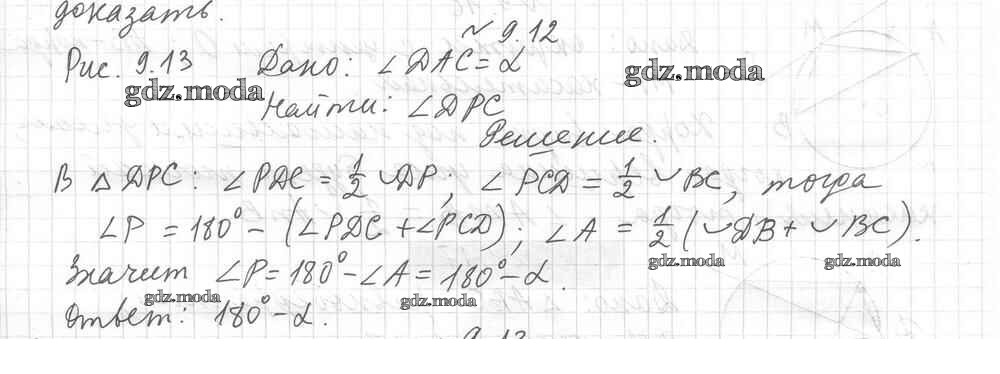 доказать.
№ 9.12
Рис. 9.13 Дано: ∠DAC = α
gdz.moda gdz.moda
Найти: ∠DPC
Решение.
В △DPC: ∠PDC = 1/2 ◡DP; ∠PCD = 1/2 ◡BC, тогда
∠P = 180° - (∠PDC + ∠PCD); ∠A = 1/2 (◡DB + ◡BC).
gdz.moda gdz.moda
Значит ∠P = 180° - ∠A = 180° - α.
gdz.moda gdz.moda
Ответ: 180° - α.